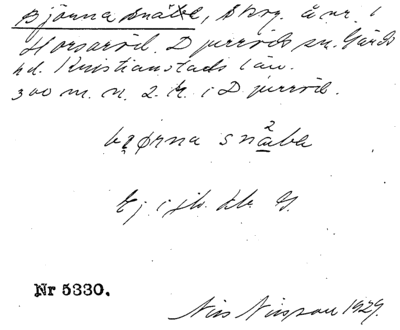 Björna snäbe, Skog. å nr. 1
Horsaröd. Djurröds sn. Gärds
hd. Kristianstads län.
300 m. n. 2. K. i Djurröd.
snäbe
Ej i jb.
Nr 5330.
Nils Nilsson 1929.